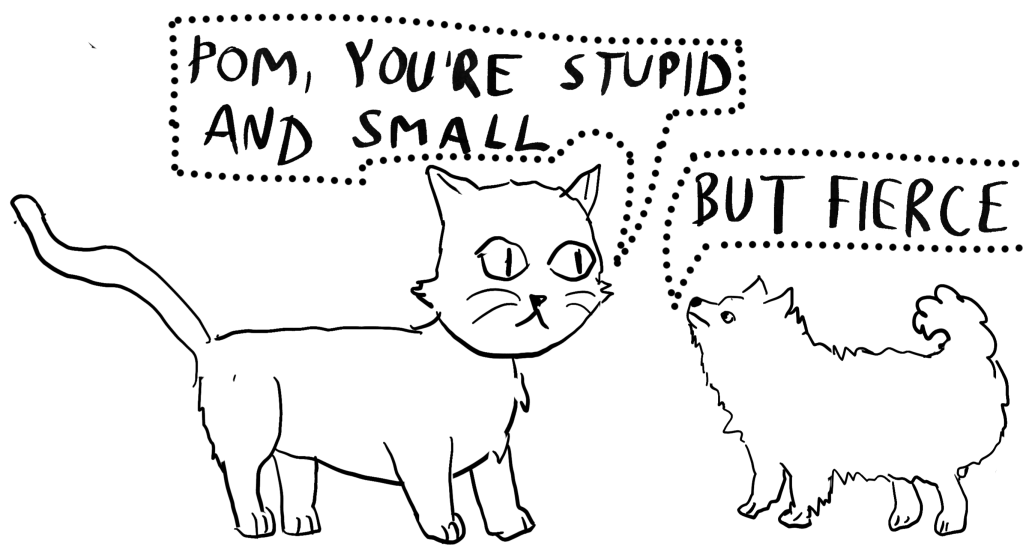 POM, YOU'RE STUPID
AND SMALL
BUT FIERCE